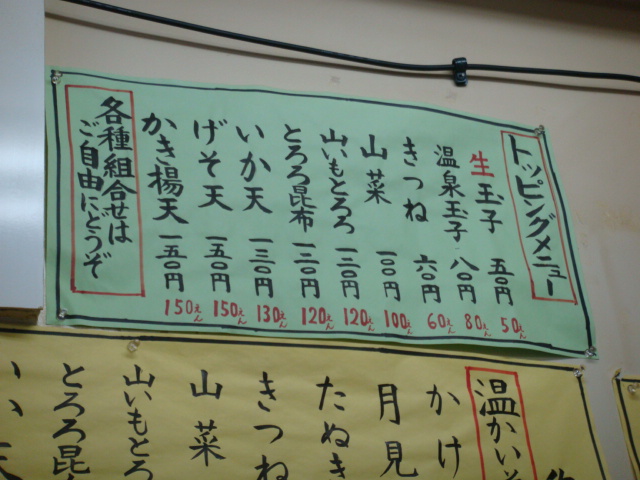 トッピングメニュー
生玉子 五〇円 50えん
温泉玉子 八〇円 80えん
きつね 六〇円 60えん
山菜 一〇〇円 100えん
山いもとろろ 一二〇円 120えん
とろろ昆布 一二〇円 120えん
いか天 一三〇円 130えん
げそ天 一五〇円 150えん
かき揚天 一五〇円 150えん
各種組合せは
ご自由にどうぞ
温かいそ
かけ
月見
たぬき
きつね
山菜
山いもとろ
とろろ昆
い天